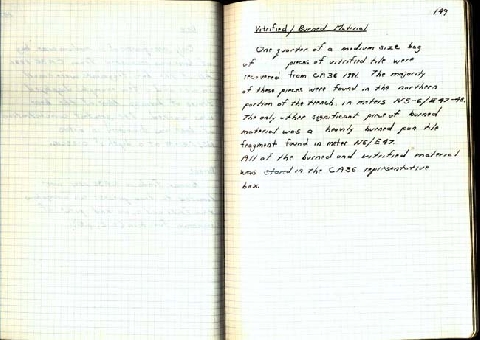 149
Vitrified / Burned Material
One quarter of a medium size bag
of pieces of vitrified tile were
recovered from CA36 1991. The majority
of these pieces were found in the northern
portion of the trench, in meters N5-6/E47-48.
The only other significant piece of burned
material was a heavily burned pan tile
fragment found in meter N6/E47.
All of the burned and vitrified material
was stored in the CA36 representative
box.